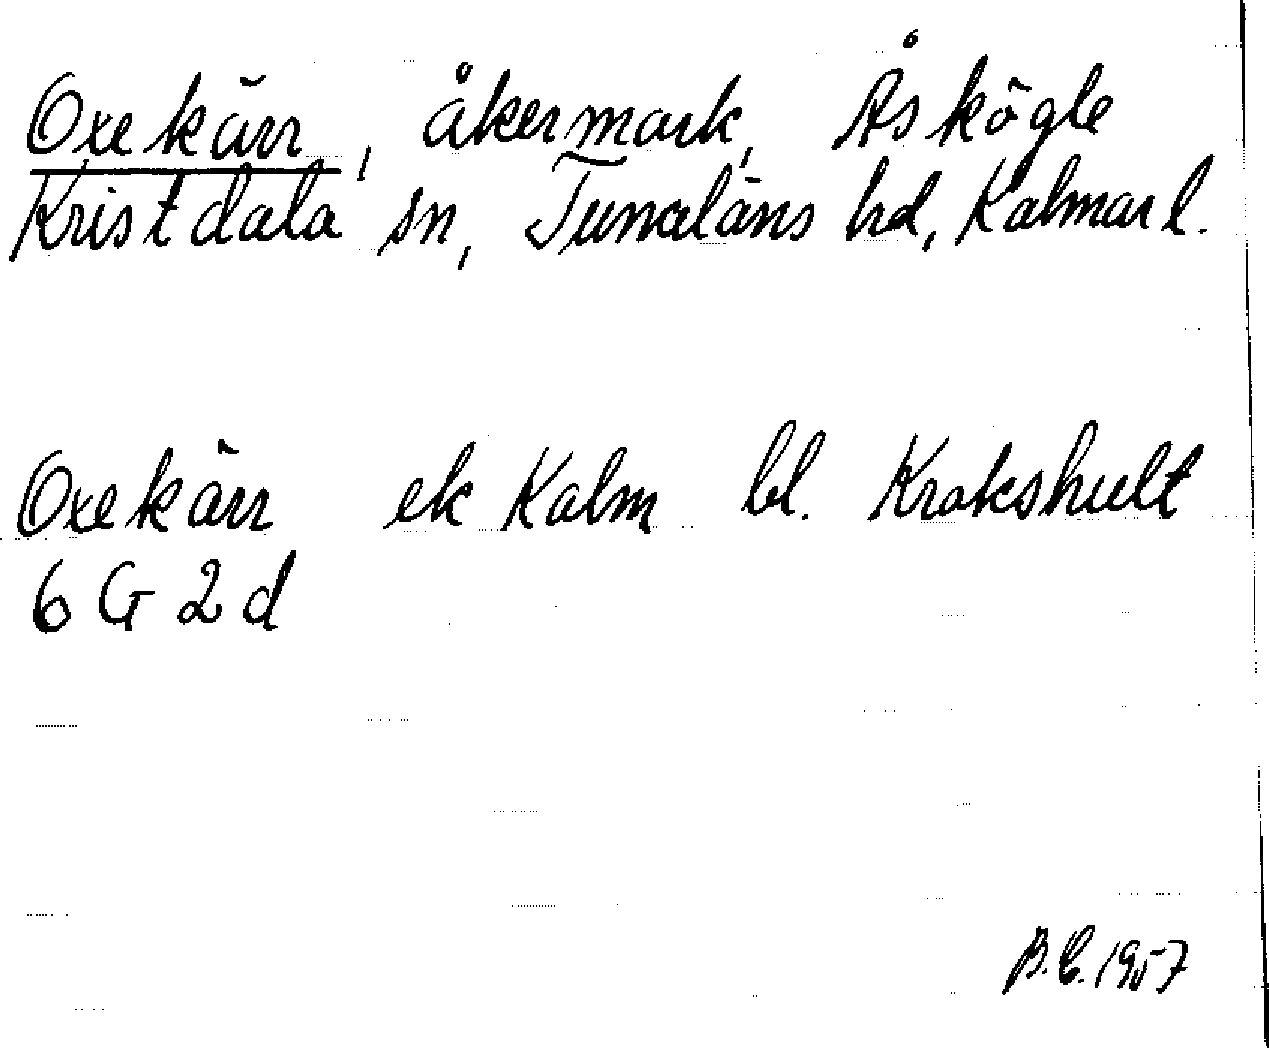 Oxekärr, åkermark, Åskögle
Kristdala sn, Tunaläns hd, Kalmar l.
Oxekärr ek Kalm bl. Krokshult
6 G 2 d
B.C. 1957